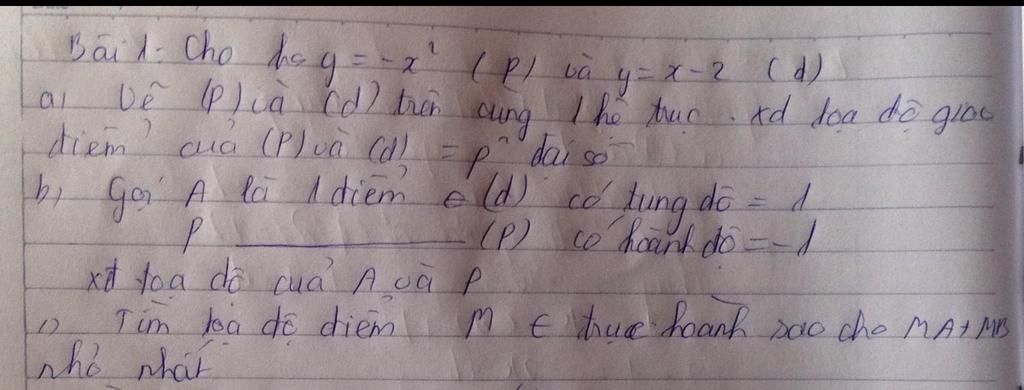 Bài 1: Cho hs y = -x² (P) và y = x - 2 (d)
a, Vẽ (P) và (d) trên cùng 1 hệ trục. xđ tọa độ giao
điểm của (P) và (d) = p² đại số
b, Gọi A là 1 điểm ∈ (d) có tung độ = 1
P ________ (P) có hoành độ = -1
xđ tọa độ của A và P
c, Tìm tọa độ điểm M ∈ trục hoành sao cho MA + MB
nhỏ nhất